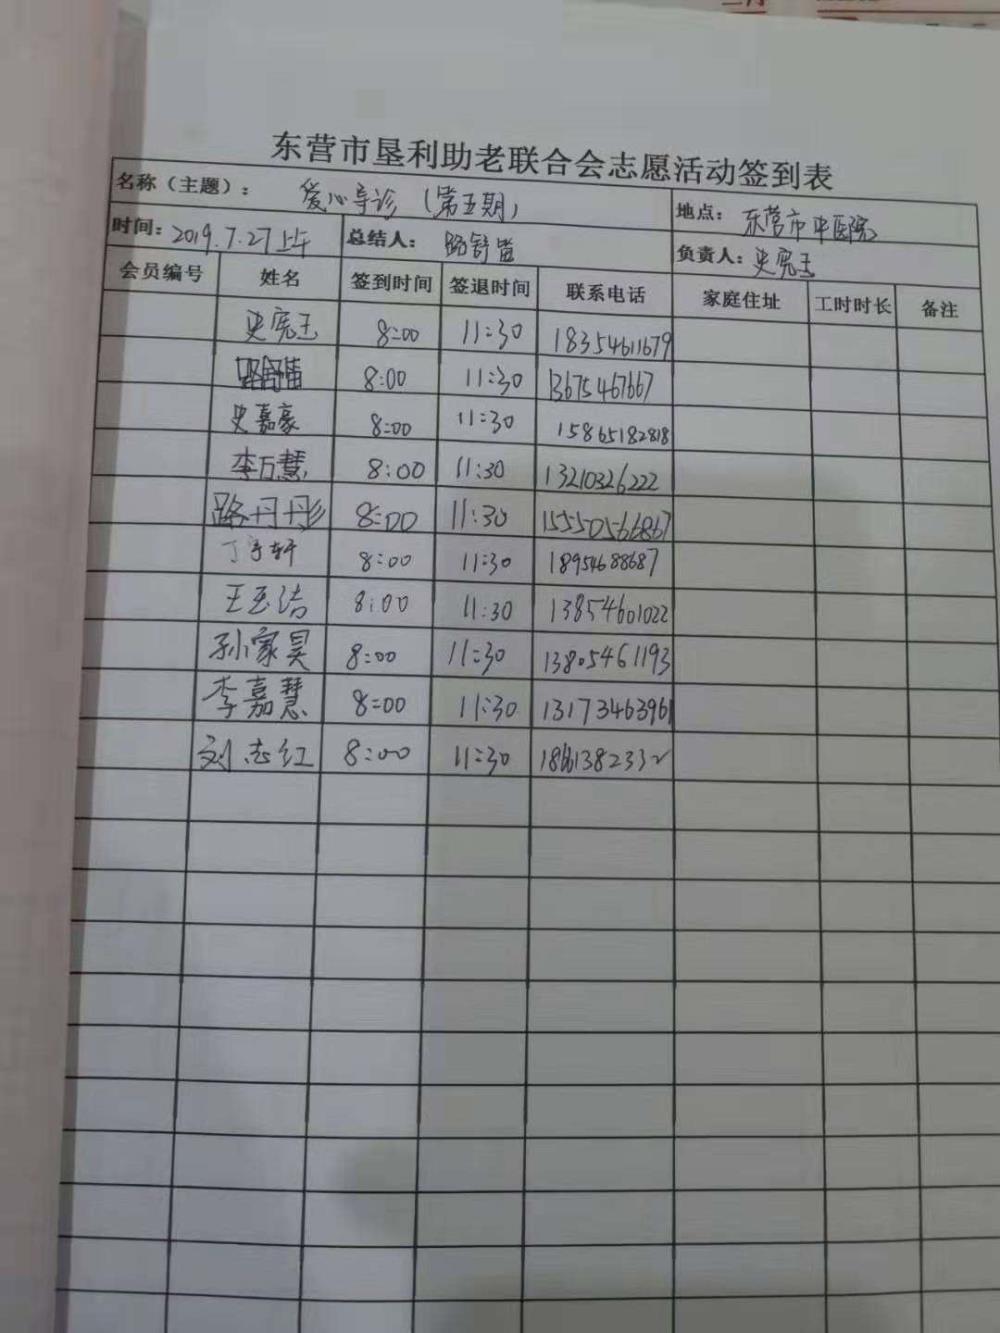 东营市垦利助老联合会志愿活动签到表
名称（主题）： 爱心导诊（第五期） 地点： 东营市中医院
时间：2019.7.27上午 总结人： 路舒 负责人：史宪玉
会员编号 姓名 签到时间 签退时间 联系电话 家庭住址 工时时长 备注
史宪玉 8:00 11:30 18354611679
8:00 11:30 13675467667
史嘉豪 8:00 11:30 15865182818
李万慧 8:00 11:30 13210326222
路丹彤 8:00 11:30 15550566867
丁宇轩 8:00 11:30 18954688687
王玉洁 8:00 11:30 13854601022
孙家昊 8:00 11:30 13805461193
李嘉慧 8:00 11:30 13173463961
刘志红 8:00 11:30